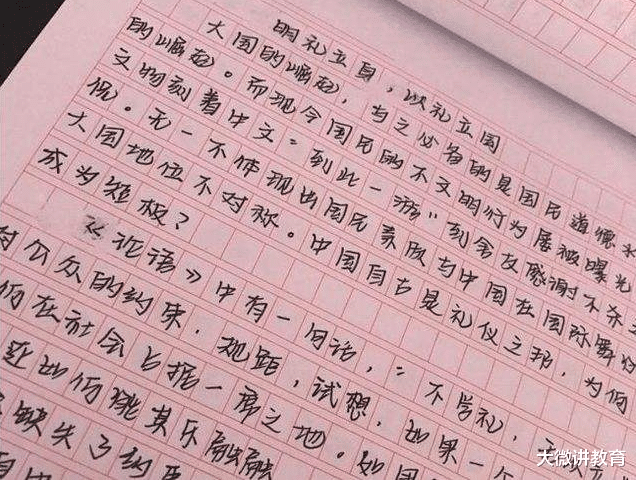 明礼立身，以礼立国
大国的崛起，与之必备的是国民道德水
的崛起。而现今国民的不文明行为屡被曝光
文物刻着中文“到此一游”刻舍友感谢不杀
侃。无一不体现出国民素质与中国在国际舞
大国地位不对称。中国自古是礼仪之邦，为何
成为短板？
《论语》中有一句话，“不学礼，无以
对公众的约束，规距，试想，如果一个
何在社会占据一席之地。如
此如何能其乐融融
缺失了约
大微讲教育